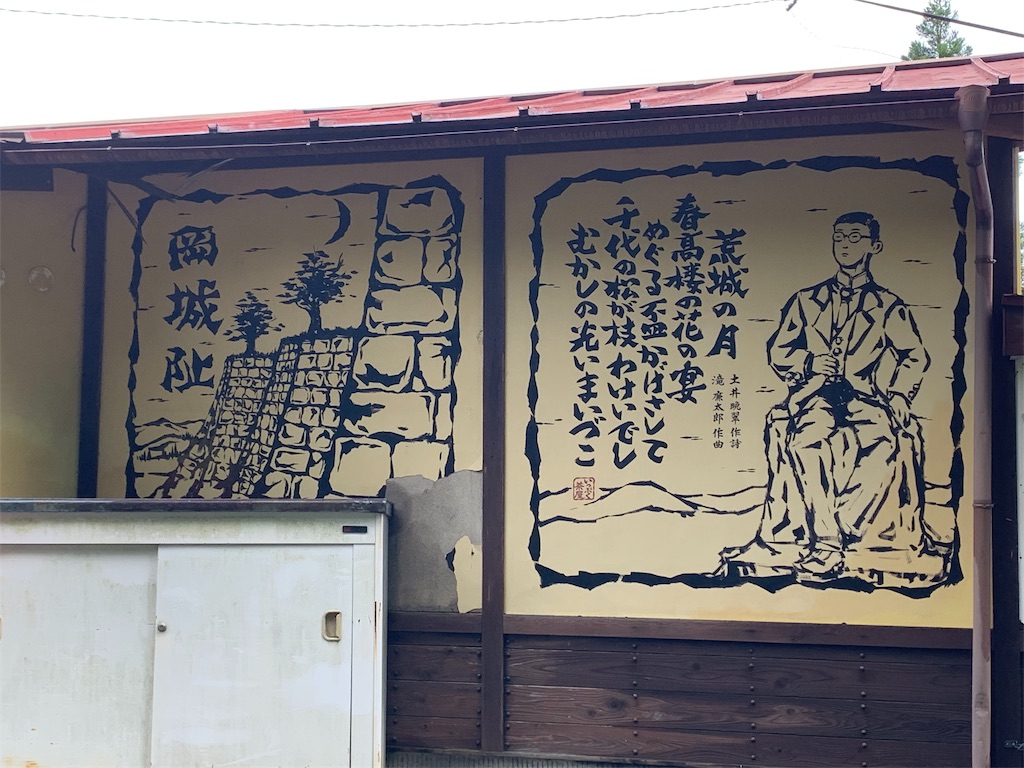 岡城阯
荒城の月
土井晩翠作詩
滝廉太郎作曲
春高楼の花の宴
めぐる盃かげさして
千代の松が枝わけいでし
むかしの光いまいづこ